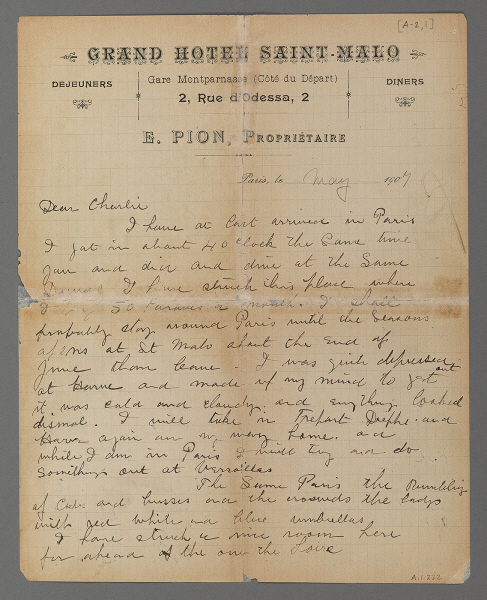 [A-2,1]
GRAND HOTEL SAINT-MALO
Gare Montparnasse (Côté du Départ)
DÉJEUNERS
DINERS
2, Rue d'Odessa, 2
E. PION, PROPRIÉTAIRE
Paris, le May 1907
Dear Charlie
I have at last arrived in Paris
I got in about 4 O'clock the same time
you and did and dine at the same
I have struck this place where
I 50 Francs a month. I shall
probably stay around Paris until the seasons
opens at St Malo about the End of
June then leave. I was quite depressed
at Home and made up my mind to get out
it was cold and cloudy and everything looked
dismal. I will take in Treport Dieppe and
Havre again on my way home. and
while I am in Paris I will try and do
something out at Versailles
The Same Paris the Rumbling
of Cabs and busses and the crowds the ladys
with red white and blue umbrellas
I have struck a nice room here
far ahead of the one the Loire
A.1.222